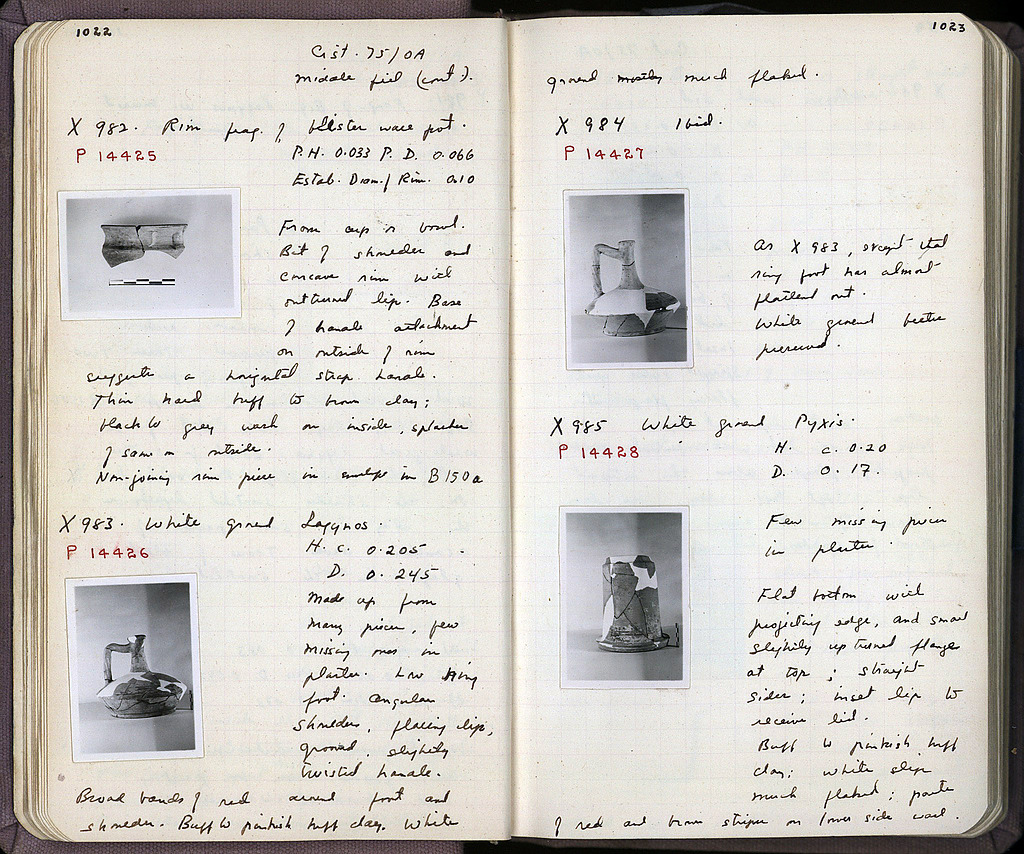 1022
Cist. 75/OA
middle fill (cont).
X 982. Rim frag. of blister ware pot.
P 14425
P.H. 0.033 P. D. 0.066
Estab. Diam. of Rim. 0.10
From cup or bowl.
Bit of shoulder and
concave rim with
outturned lip. Base
of handle attachment
on outside of rim
suggests a horizontal strap handle.
Thin hard buff to brown clay;
black to grey wash on inside, splashes
of same on outside.
Non-joining rim piece in envelope in B 150a
X 983. White ground Lagynos.
P 14426
H. c. 0.205
D. 0.245
Made up from
many pieces, few
missing ones in
plaster. Low ring
foot. angular
shoulder, flaring lip,
grooved, slightly
twisted handle.
Broad bands of red around foot and
shoulder. Buff to pinkish buff clay. White
1023
ground mostly much flaked.
X 984 Ibid.
P 14427
As X 983, except that
ring foot has almost
flattened out.
White ground better
preserved.
X 985 White ground Pyxis.
P 14428
H. c. 0.20
D. 0.17.
Few missing pieces
in plaster.
Flat bottom with
projecting edge, and small
slightly upturned flange
at top; straight
sides; inset lip to
receive lid.
Buff to pinkish buff
clay; white slip
much flaked; parts
of red and brown stripes on lower side wall.